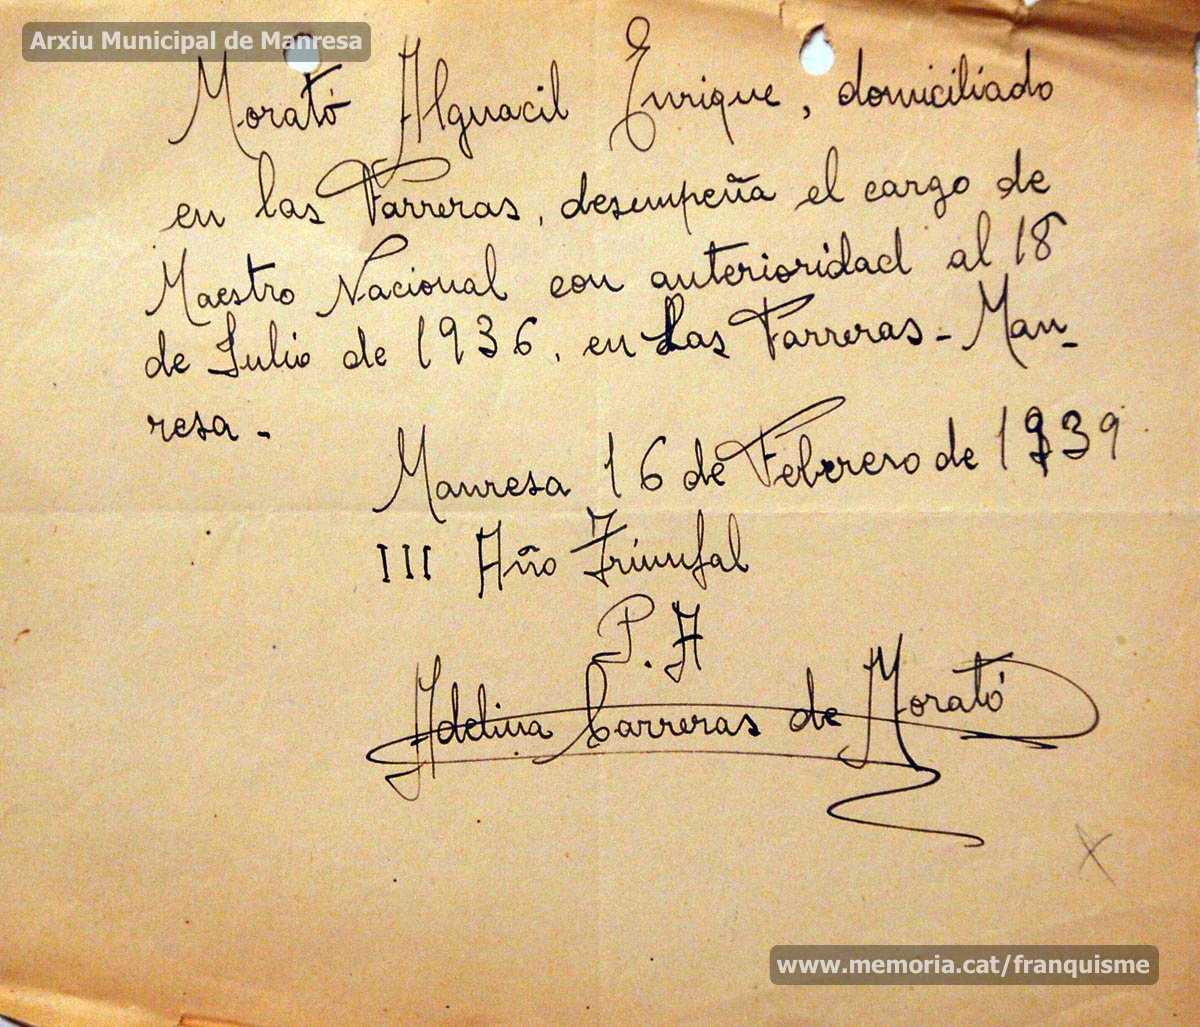 Arxiu Municipal de Manresa
Morató Alguacil Enrique, domiciliado
en las Farreras, desempeña el cargo de
Maestro Nacional con anterioridad al 18
de Julio de 1936, en Las Farreras - Man-
resa -
Manresa 16 de Febrero de 1939
III Año Triunfal
P. A
Adelina Carreras de Morató
www.memoria.cat/franquisme